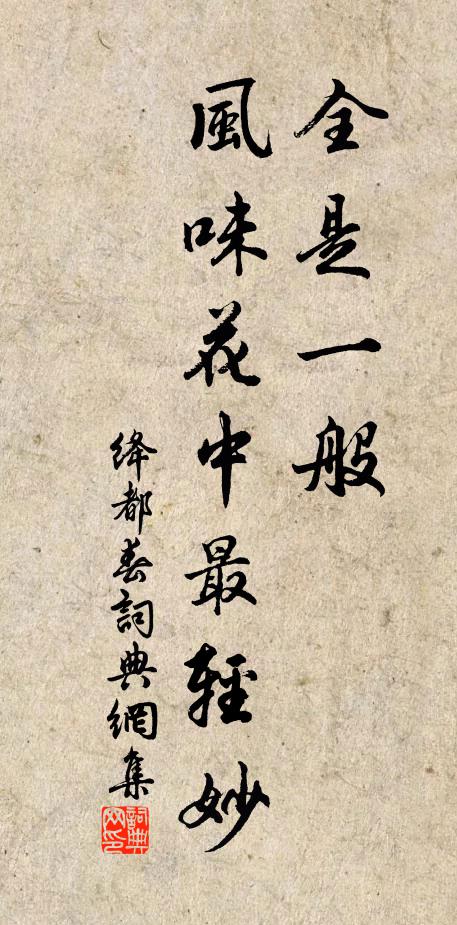 全是一般
風味花中最輕妙
絳都春詞典網集
詞典
网印